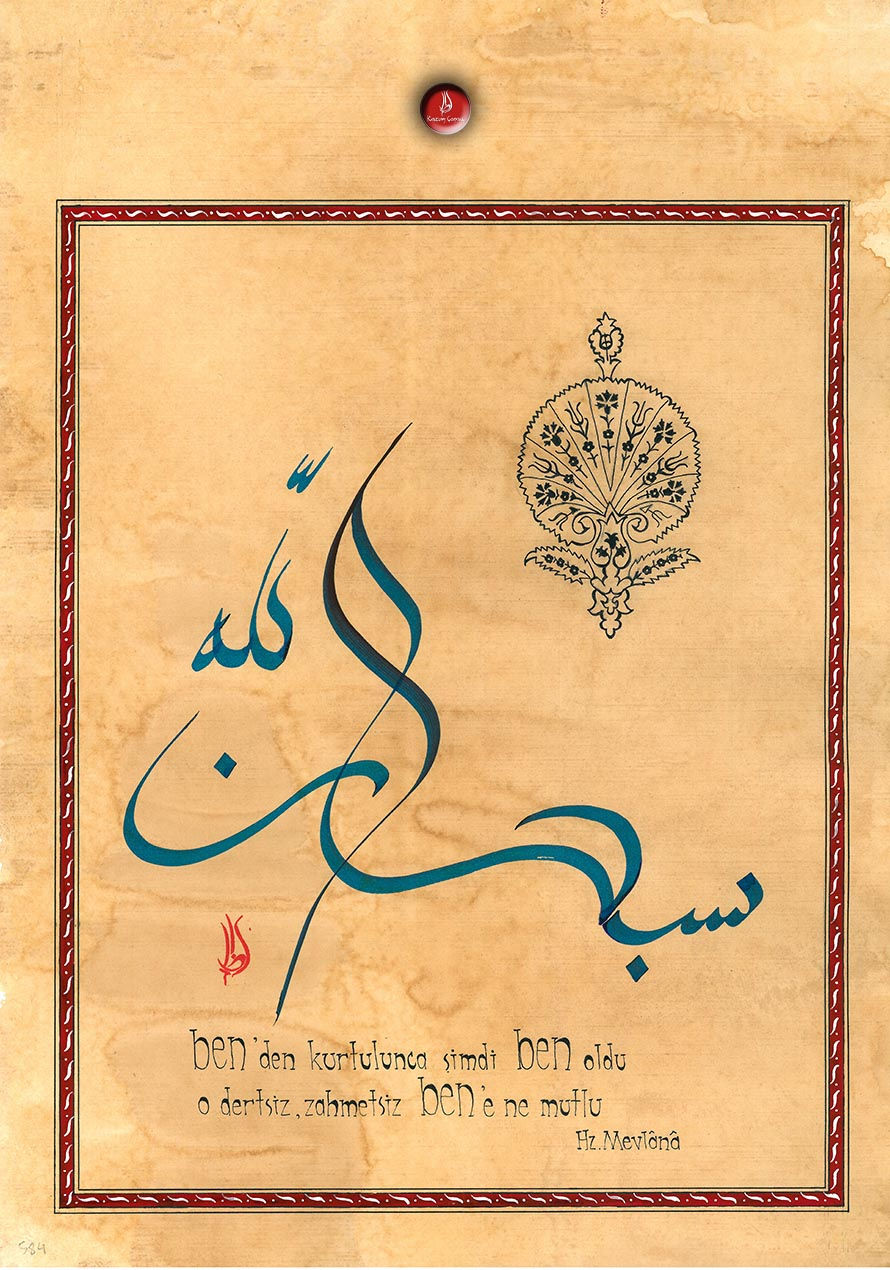 سبحان الله
ben'den kurtulunca şimdi ben oldu
o dertsiz, zahmetsiz ben'e ne mutlu
Hz. Mevlânâ
584